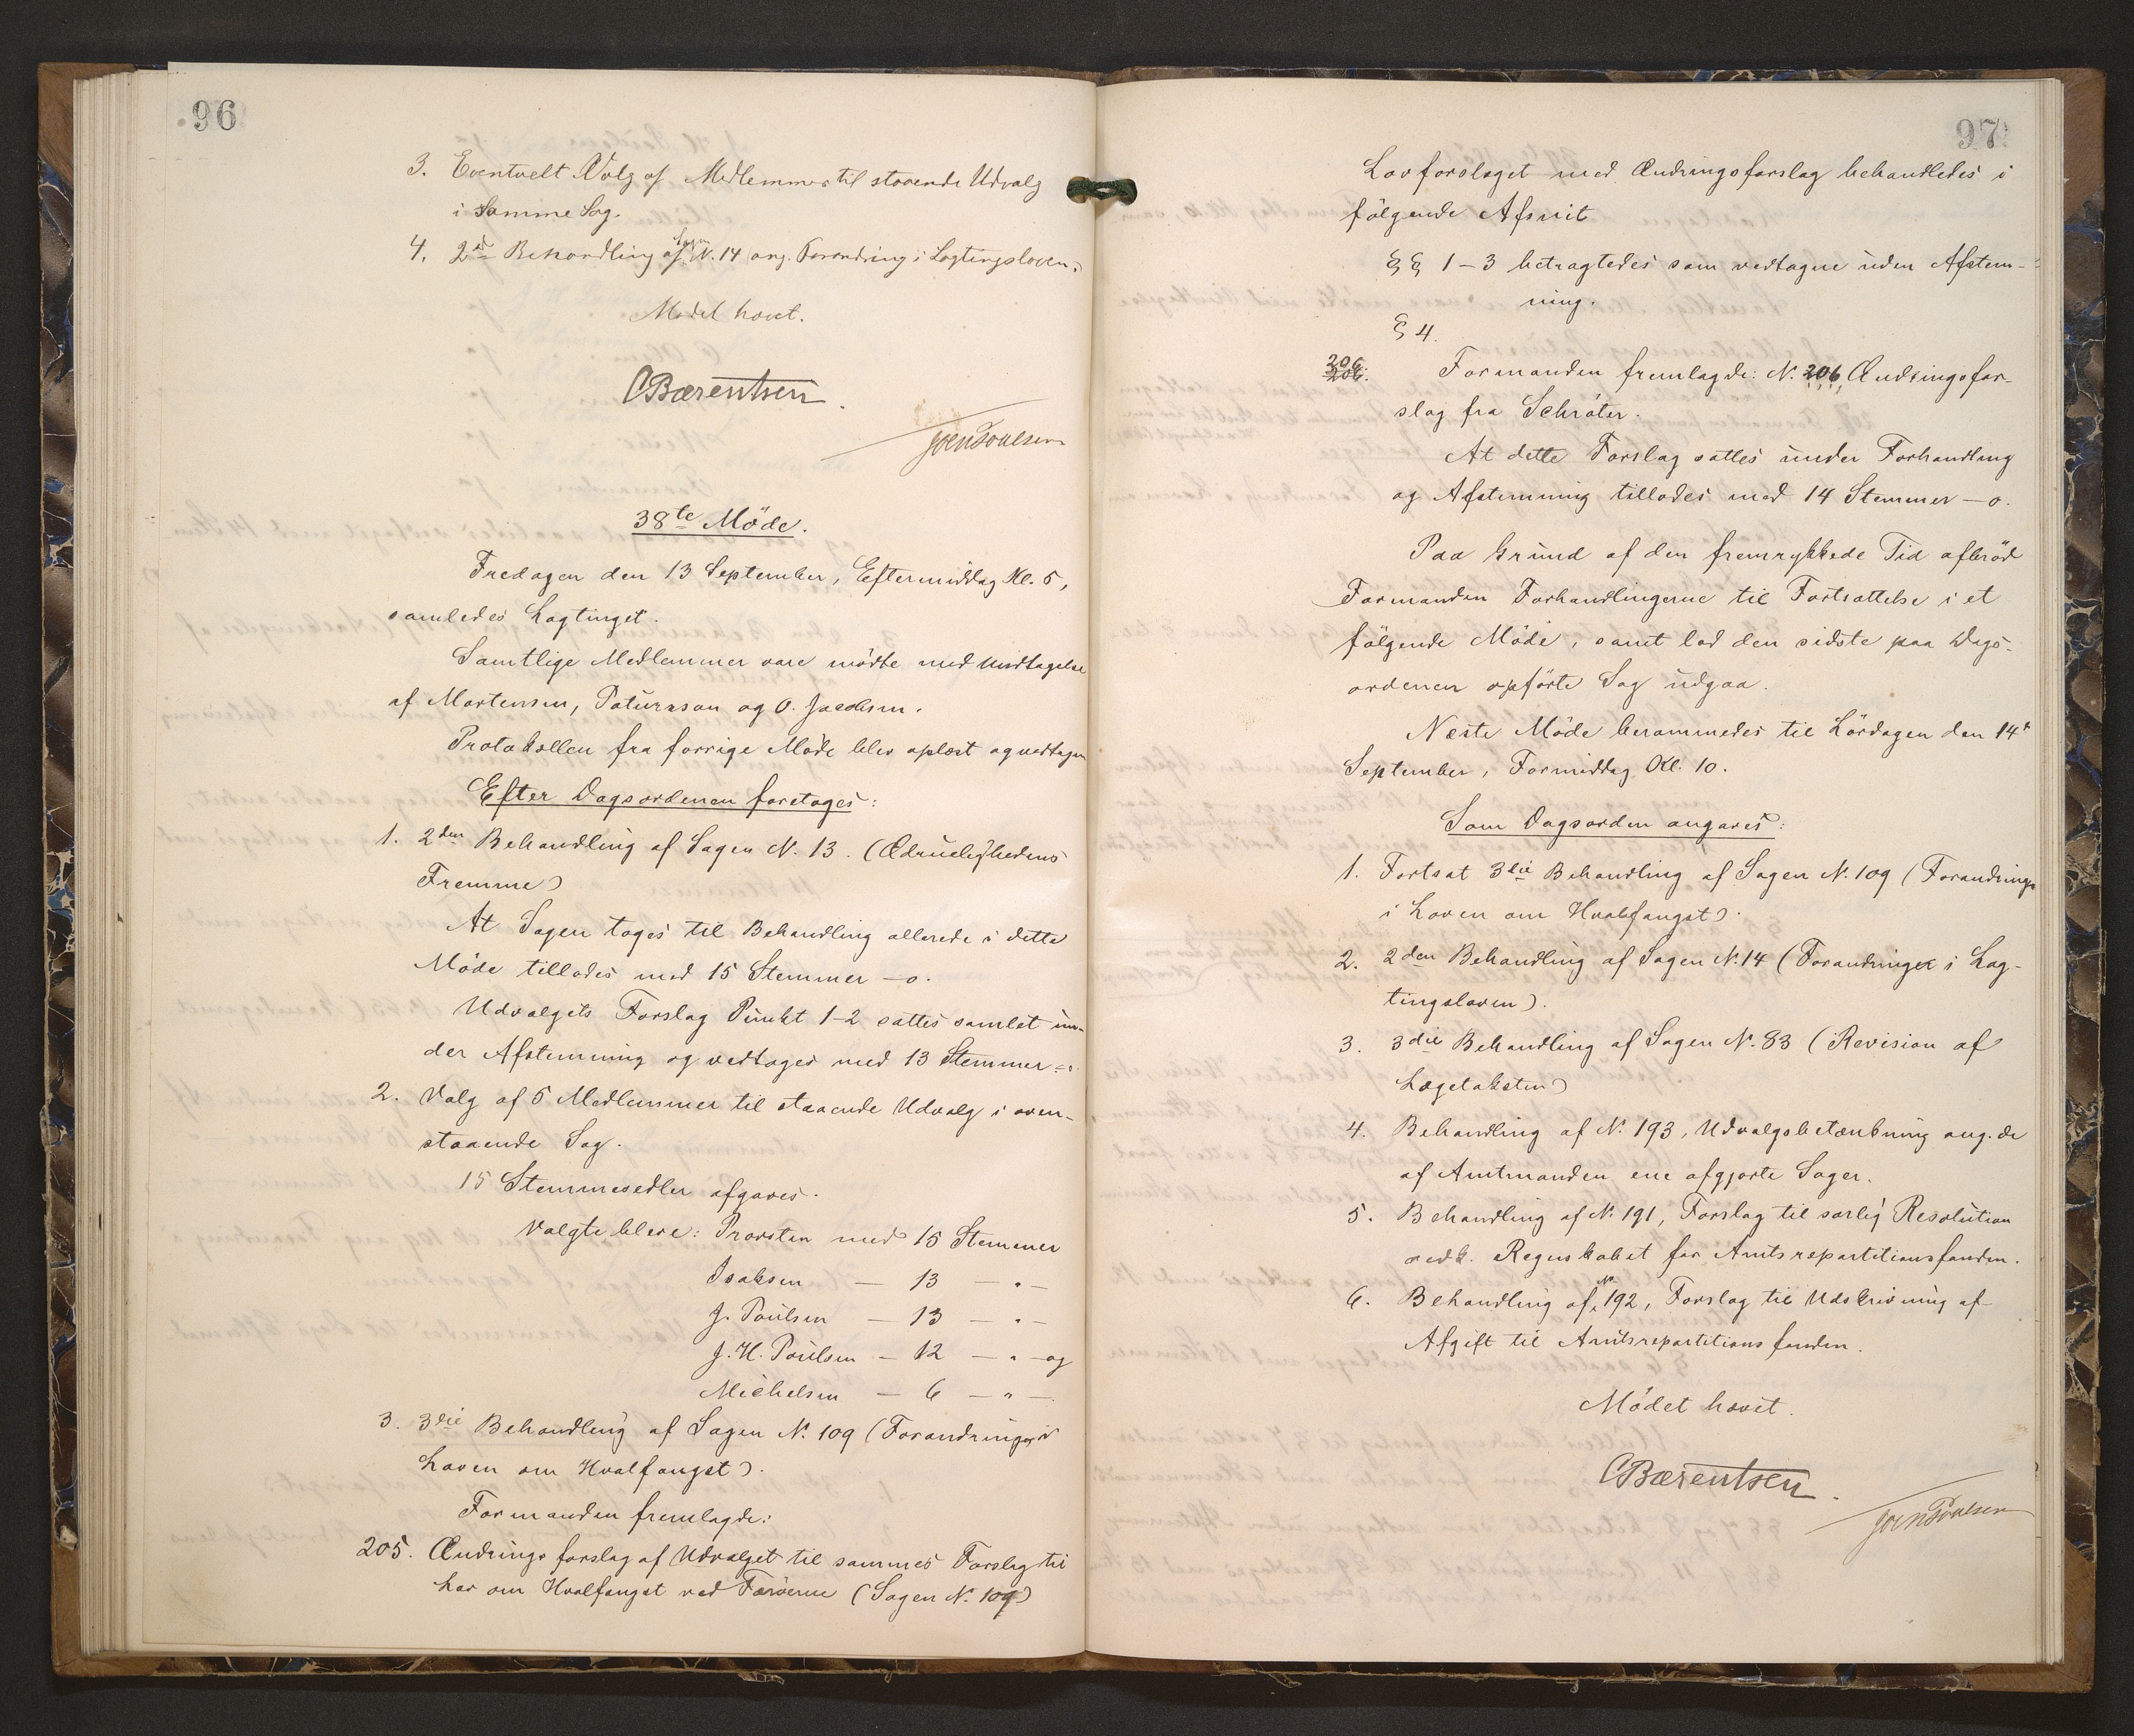 96
3. Eventuelt Valg af Medlemmer til staaende Udvalg
i samme Sag.
4. 2den Behandling af Sagen N. 14 ang. Forandring i Lagtingsloven.
Mødet hævet.
CBærentsen.
Joen Poulsen
38te Möde.
Fredagen den 13 September, Eftermiddag Kl. 5,
samledes Lagtinget.
Samtlige Medlemmer vare mödte med Undtagelse
af Mortensen, Patursson og O. Jacobsen.
Protokollen fra forrige Möde blev oplæst og vedtagen
Efter Dagsordenen foretoges:
1. 2den Behandling af Sagen N. 13. (Ædruelighedens
Fremme)
At Sagen toges til Behandling allerede i dette
Möde tillodes med 15 Stemmer – o.
Udvalgets Forslag Punkt 1-2 sattes samlet un-
der Afstemning og vedtoges med 13 Stemmer
2. Valg af 5 Medlemmer til staaende Udvalg i oven-
staaende Sag.
15 Stemmesedler afgaves.
Valgte bleve: Provsten med 15 Stemmer
Isaksen — 13 — " —
J. Poulsen — 13 — " —
J. H. Poulsen — 12 — " — og
Michelsen — 6 — " —.
3. 3die Behandling af Sagen N. 109 (Forandringer i
Loven om Hvalfangst).
Formanden fremlagde:
205. Ændringsforslag af Udvalget til sammes Forslag til
Lov om Hvalfangst ved Færöerne (Sagen N. 109)
97
Lovforslaget med Ændringsforslag behandledes i
fölgende Afsnit
§§ 1-3 betragtedes som vedtagne uden Afstem-
ning.
§ 4.
206
206. Formanden fremlagde: N. 206 Ændringsfor-
slag fra Schröter.
At dette Forslag sattes under Forhandling
og Afstemning tillodes med 14 Stemmer – o.
Paa Grund af den fremrykkede Tid afbröd
Formanden Forhandlingerne til Fortsættelse i et
fölgende Möde, samt lod den sidste paa Dags-
ordenen opförte Sag udgaa.
Næste Möde berammedes til Lördagen den 14d
September, Formiddag Kl. 10.
Som Dagsorden angaves:
1. Fortsat 3die Behandling af Sagen N. 109 (Forandringer
i Loven om Hvalfangst).
2. 2den Behandling af Sagen N. 14 (Forandringer i Lag-
tingsloven).
3. 3die Behandling af Sagen N. 83 (Revision af
Lægetaksten)
4. Behandling af N. 193, Udvalgsbetænkning ang. de
af Amtmanden ene afgjorte Sager.
5. Behandling af N. 191, Forslag til særlig Resolution
vedk. Regnskabet for Amtsrepartitionsfonden.
6. Behandling af N. 192, Forslag til Udskrivning af
Afgift til Amtsrepartitionsfonden.
Mödet hævet.
CBærentsen.
Joen Poulsen